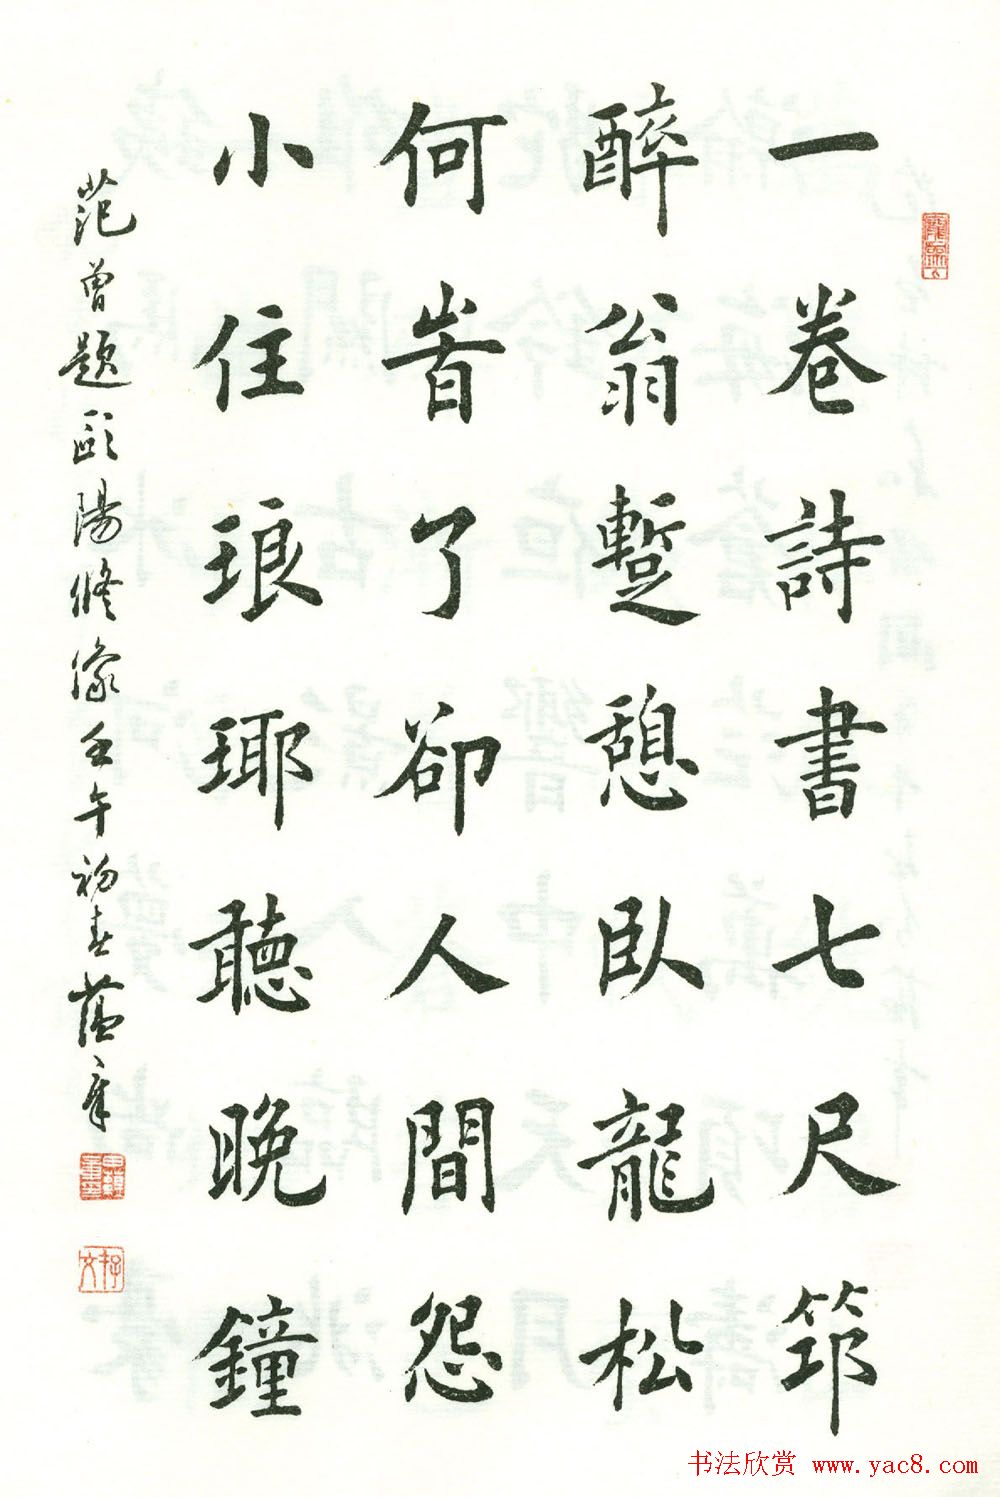 一卷詩書七尺筇
醉翁蹔憩臥龍松
何旹了卻人間怨
小住琅琊聽晚鐘
范曾題歐陽修像壬午初春蘊章
书法欣赏 www.yac8.com